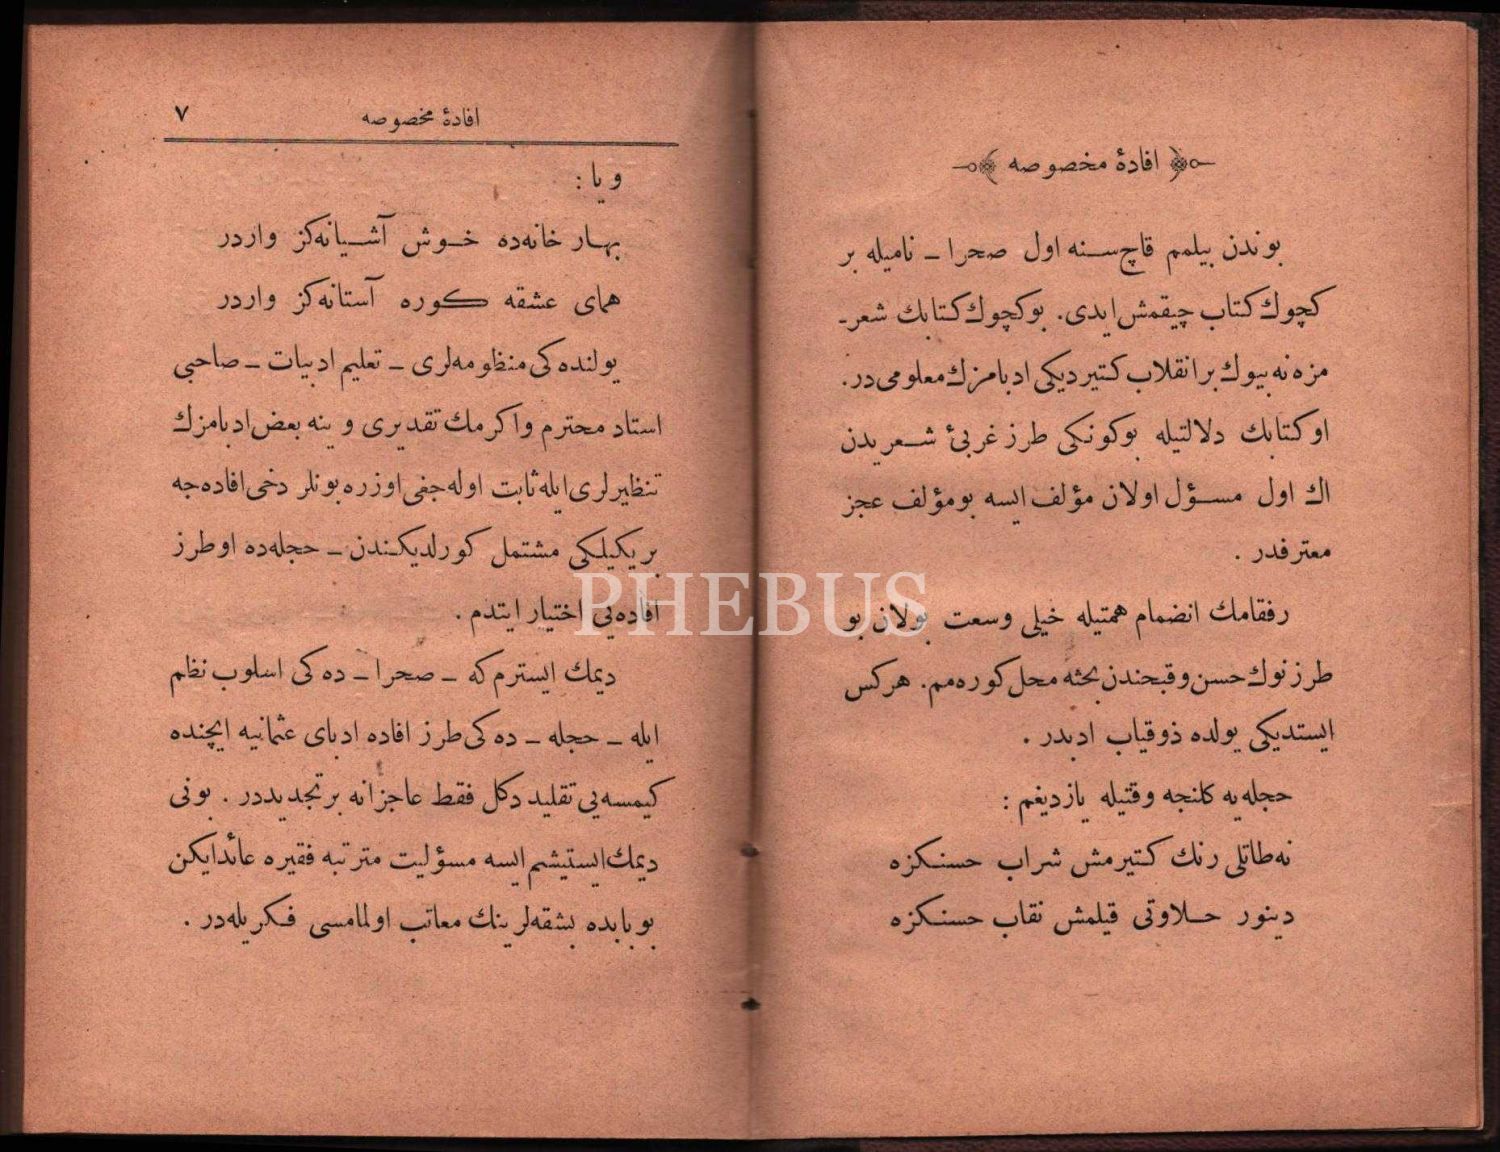 افادهٔ مخصوصه
بوندن بیلمم قاچ سنه اول صحرا ـ نامیله بر
کچوك کتاب چیقمش ایدی. بو کچوك کتابك شعر ـ
مزه نه بیوك بر انقلاب کتیردیکی ادبامزك معلومی در.
او کتابك دلالتیله بوکونکی طرز غربئ شعریدن
اك اول مسؤل اولان مؤلف ایسه بو مؤلف عجز
معترفدر .
رفقامك انضمام همتیله خیلی وسعت بولان بو
طرز نوك حسن و قبحندن بحثه محل کوره مم. هرکس
ایستدیکی یولده ذوقیاب ادبدر .
حجله یه کلنجه وقتیله یازدیغم :
نه طاتلی رنك کتیرمش شراب حسنکزه
دینور حلاوتی قیلمش نقاب حسنکزه
افادهٔ مخصوصه ٧
ویا :
بهار خانه ده خوش آشیانه کز واردر
همای عشقه کوره آستانه کز واردر
یولنده کی منظومه لری ـ تعلیم ادبیات ـ صاحبی
استاد محترم واکرمك تقدیری و ینه بعض ادبامزك
تنظیرلری ایله ثابت اوله جغی اوزره بونلر دخی افاده جه
بر یکیلکی مشتمل کورلدیکندن ـ حجله ده او طرز
افاده یی اختیار ایتدم .
دیمك ایسترم که ـ صحرا ـ ده کی اسلوب نظم
ایله ـ حجله ـ ده کی طرز افاده ادبای عثمانیه ایچنده
کیمسه یی تقلید دکل فقط عاجزانه بر تجدیددر . بونی
دیمك ایستیشم ایسه مسؤلیت مترتبه فقیره عائد ایکن
بو بابده بشقه لرینك معاتب اولمامسی فکریله در .
PHEBUS